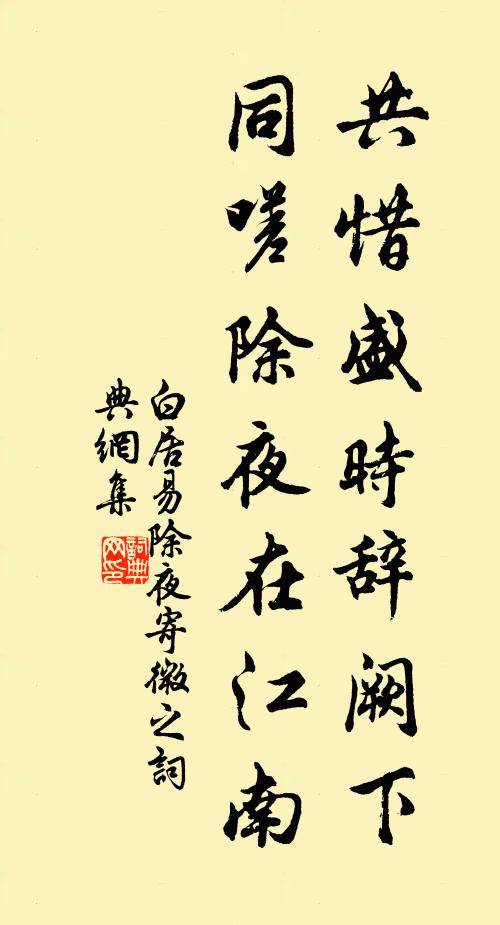 共惜盛時辞阙下
同嗟除夜在江南
白居易除夜寄微之詞
典網集
詞典
网印